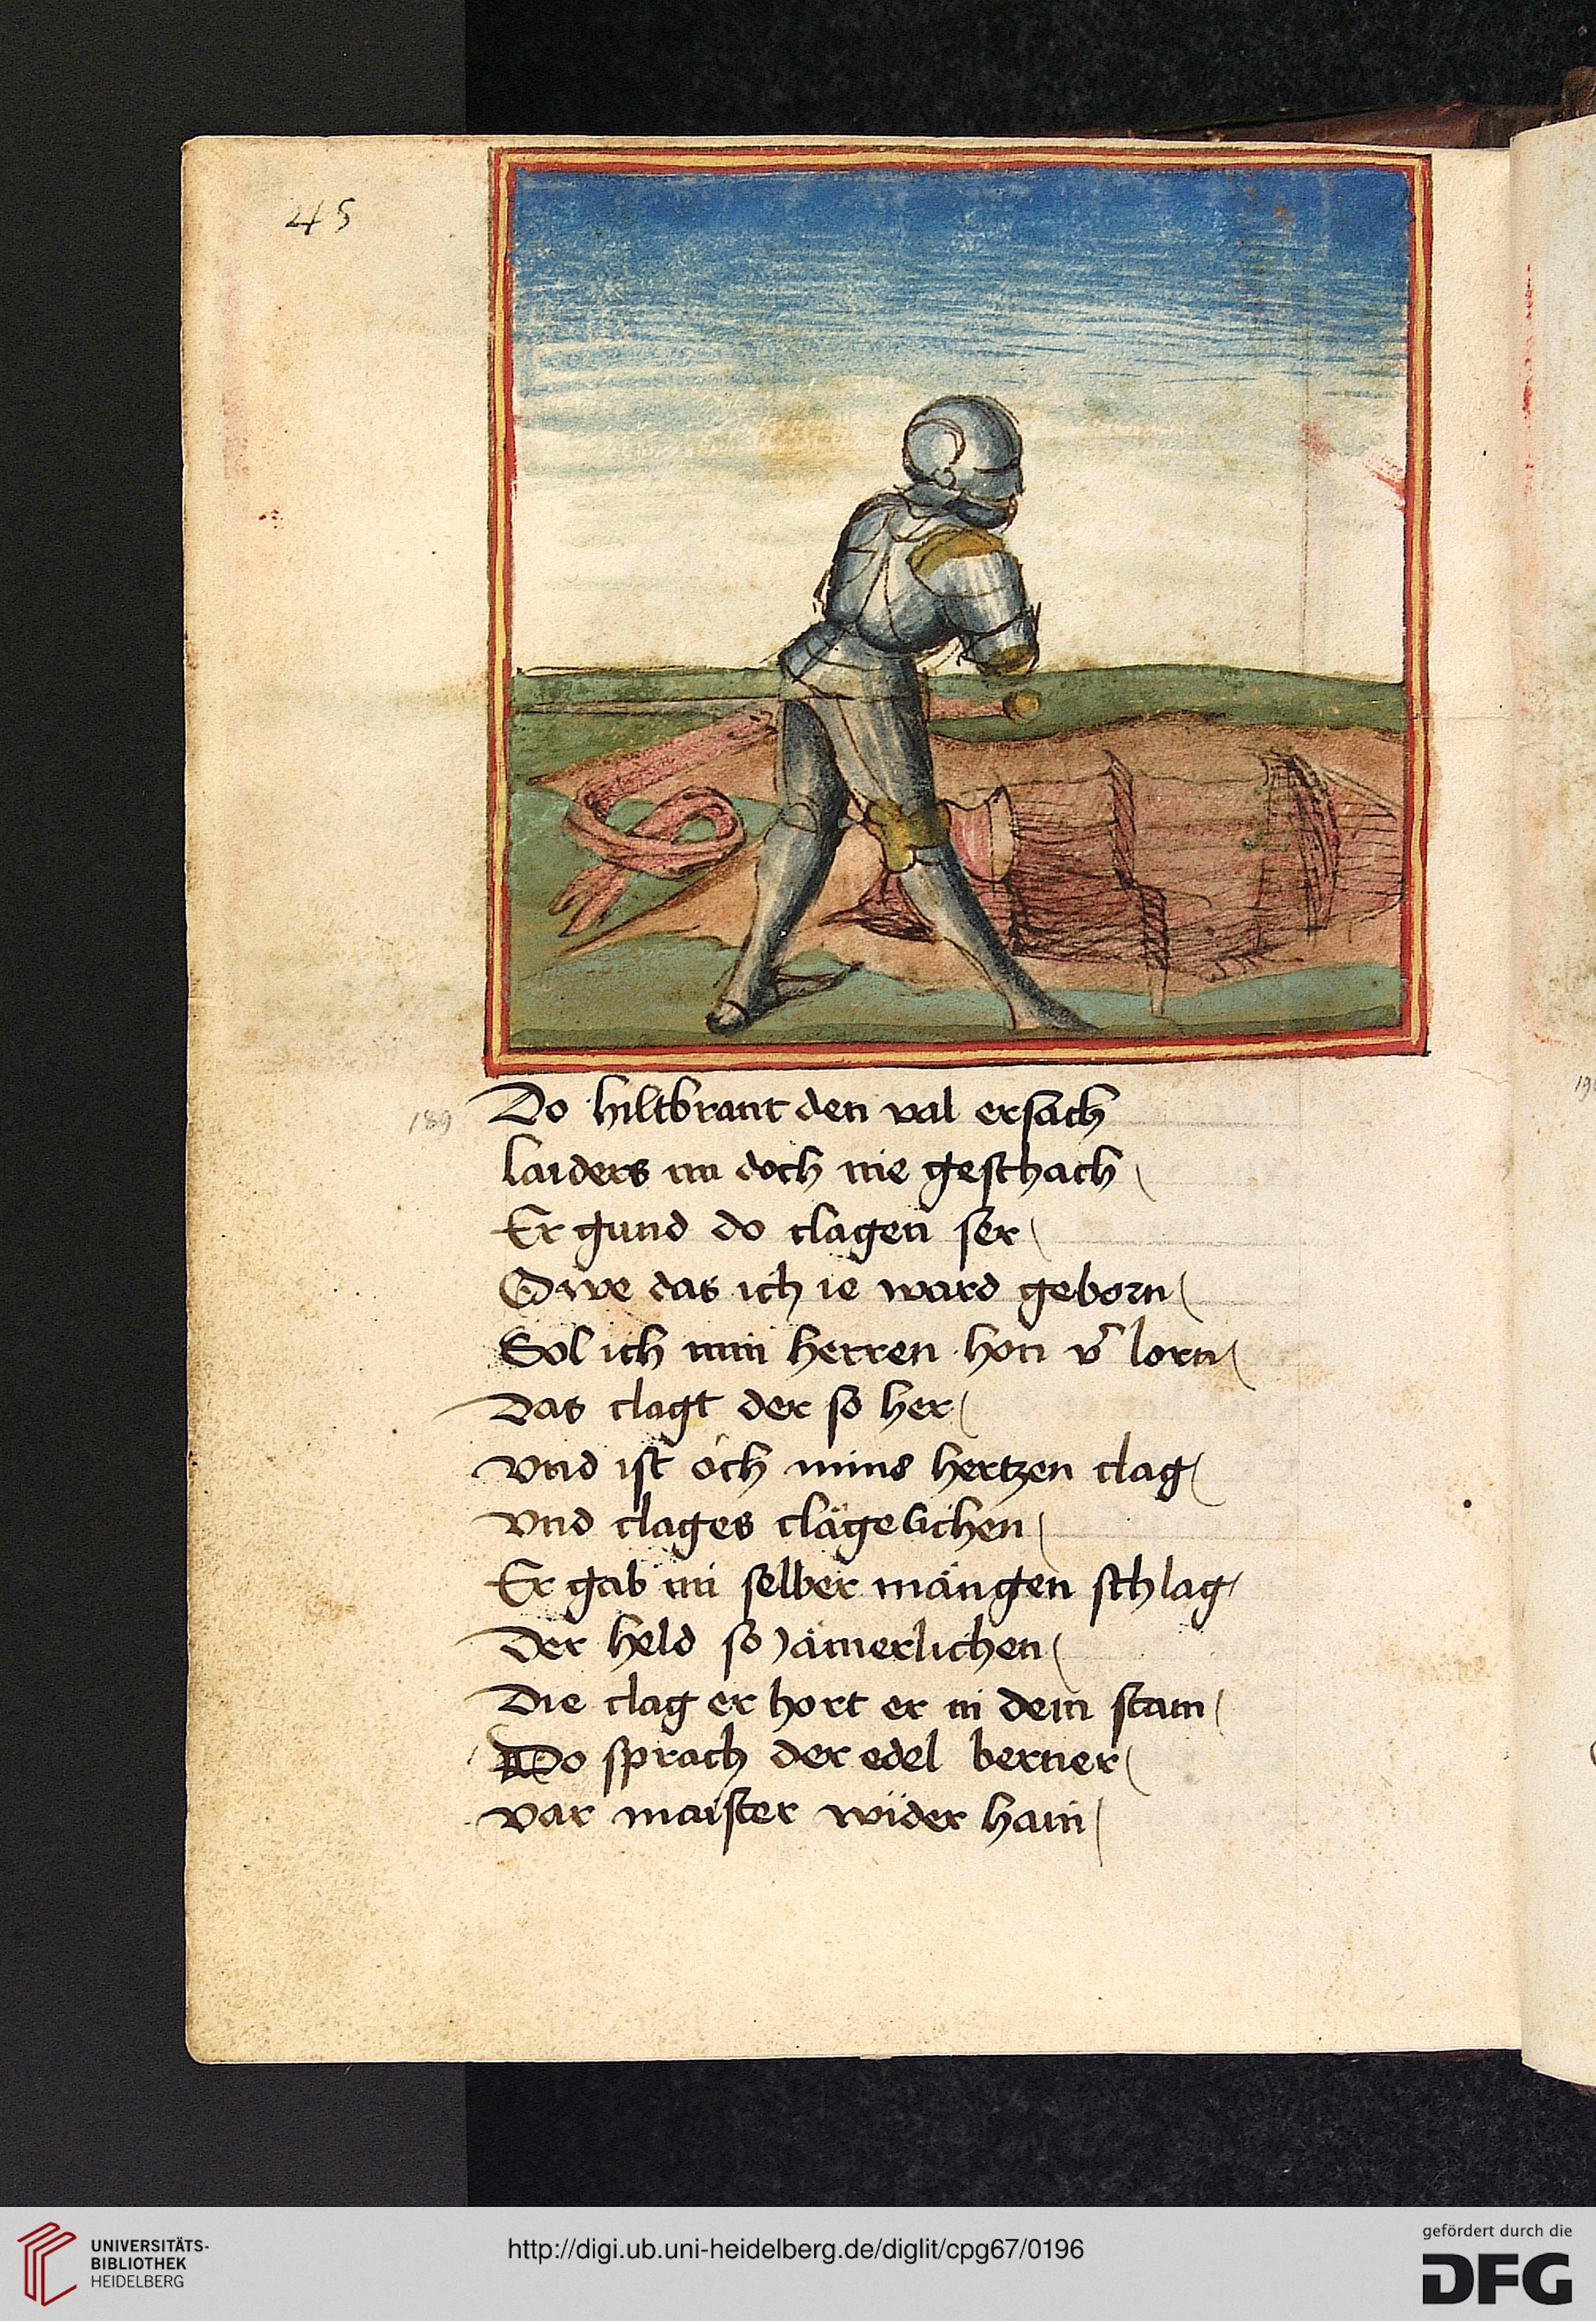 45
189
Do hiltbrant den val ersach
laiders im doch nie geschach
Er gund do clagen ser
Owe das ich ie ward geborn
Sol ich min herren hon v͛ lorn
Das clagt der so her
Vnd ist och mins hertzen clag
Vnd clages clägelichen
Er gab im selber mängen schlag
Der held so jämerlichen
Die clag er hort er in dem stain
Do sprach der edel berner
Var maister wider hain
19
UNIVERSITÄTS-
BIBLIOTHEK
HEIDELBERG
http://digi.ub.uni-heidelberg.de/diglit/cpg67/0196
gefördert durch die
DFG